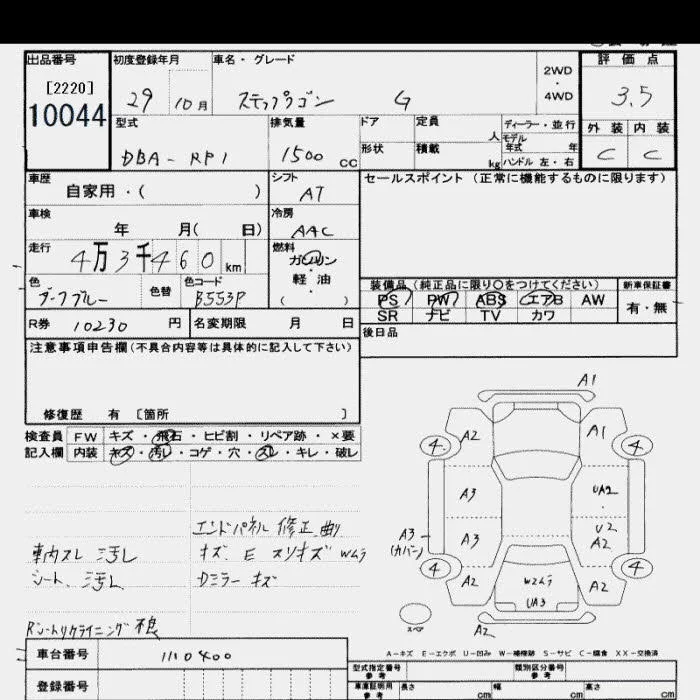 出品番号 初度登録年月 車名・グレード 2WD・4WD 評価点
[2220]
10044
29 10月 ステップワゴン G 3.5
型式 排気量 ドア 定員 人 ディーラー・並行 外装 内装
モデル年式 年
DBA-RP1 1500 CC 形状 積載 kg ハンドル 左・右 C C
車歴 シフト セールスポイント(正常に機能するものに限ります)
自家用・( ) AT
車検 冷房
年 月( 日) AAC
走行 燃料
4万3千460 km ガソリン
軽油
( )
色 色替 色コード 装備品(純正品に限り○をつけてください) 新車保証書
B553P PS PW ABS エアB AW 有・無
SR ナビ TV カワ
R券 10230 円 名変期限 月 日 後日品
注意事項申告欄(不具合内容等は具体的に記入して下さい)
修復歴 有 [箇所 ]
検査員 FW キズ・飛石・ヒビ割・リペア跡・×要
記入欄 内装 キズ・汚レ・コゲ・穴・スレ・キレ・破レ
エンドパネル 修正 曲リ
車内スレ 汚レ キズ E スリキズ Wムラ
シート 汚レ Dミラー キズ
Rシートリクライニング 不良
A1
A2 A1
4 4
A3 UA2
A3 (カバー) A3 U2 A2
4 4
A2 W2ムラ A2
UA3
スペア A2
A-キズ E-エクボ U-凹み W-補修跡 S-サビ C-腐食 XX-交換済
車台番号 1110400
登録番号
型式指定番号 参考 類別区分番号 参考
車庫証明用 参考 長さ cm 幅 cm 高さ cm